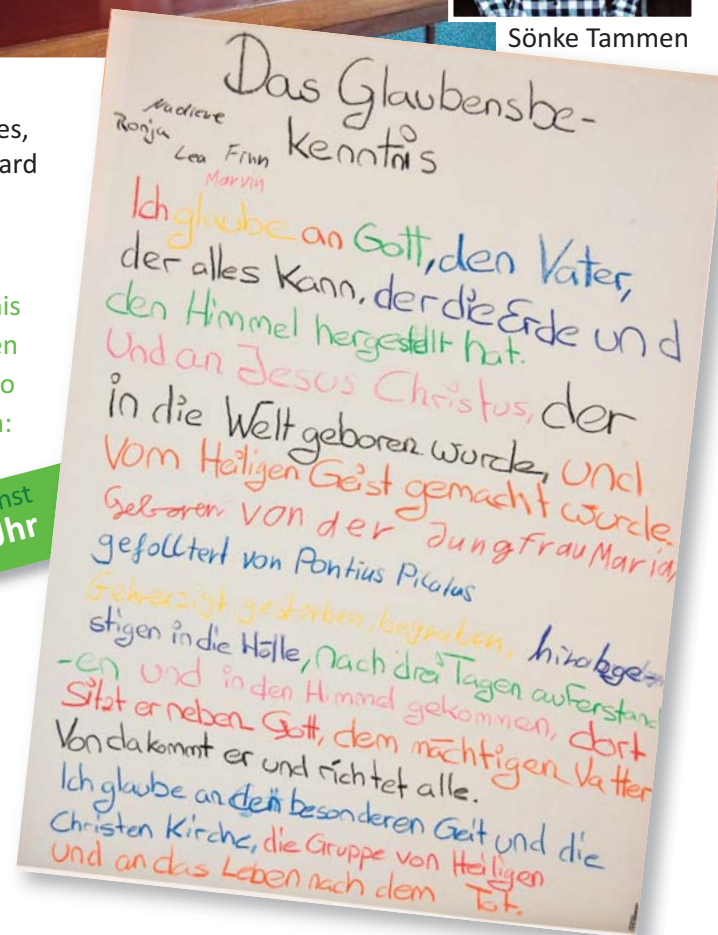 Sönke Tammen
es,
ard
nis
en
o
n:
nst
Uhr
Das Glaubensbe-
kenntnis
Nadieve
Ronja
Lea Finn
Marvin
Ich glaube an Gott, den Vater,
der alles kann, der die Erde und
den Himmel hergestellt hat.
Und an Jesus Christus, der
in die Welt geboren wurde, und
vom Heiligen Geist gemacht wurde.
Geboren von der Jungfrau Maria,
gefolltert von Pontius Pilatus
gestorben, begraben, hinabge-
stigen in die Hölle, nach drei Tagen auferstand
-en und in den Himmel gekommen, dort
Sitzt er neben Gott, dem mächtigen Vatter
Von da kommt er und richtet alle.
Ich glaube an den besonderen Geit und die
Christen Kirche, die Gruppe von Heiligen
und an das Leben nach dem Tot.